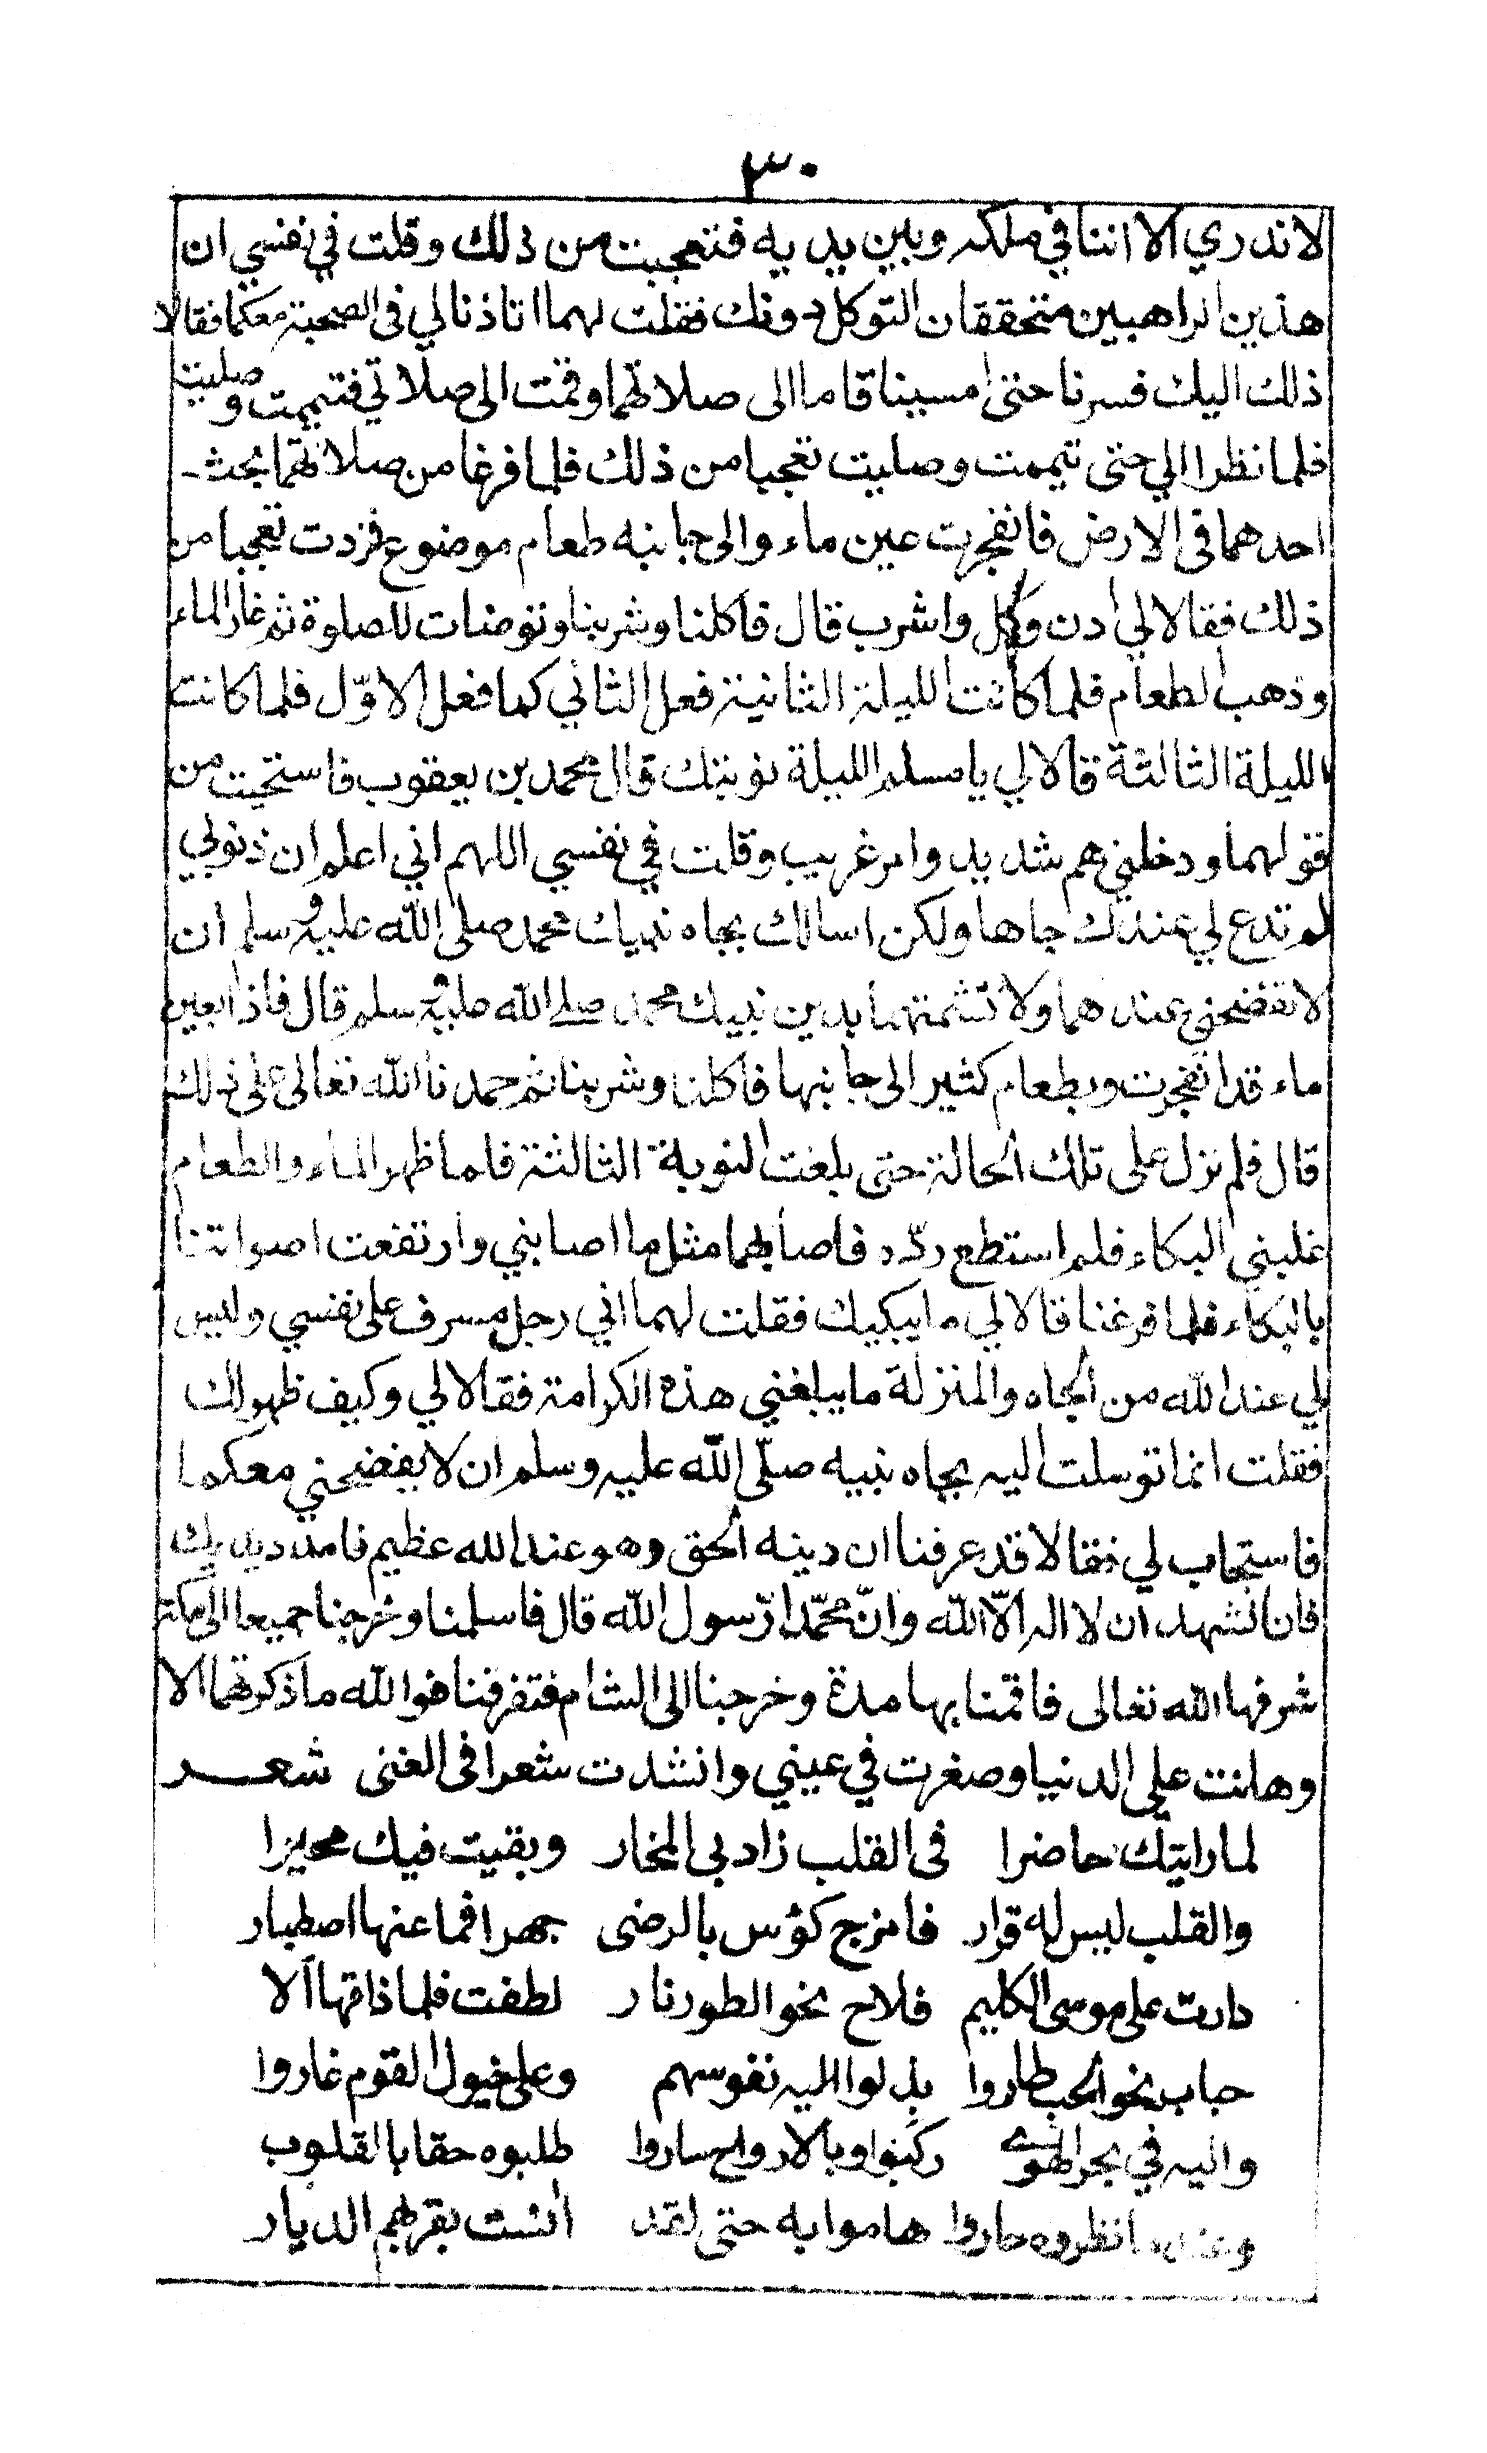 ٣٠
لا ندري الا اننا في ملكه وبين يديه فتعجبت من ذلك وقلت في نفسي ان
هذين الراهبين متحققان التوكل دونك فقلت لهما اتاذنا لي فى الصحبة معكما فقالا
ذلك اليك فسرنا حتى امسينا قاما الى صلاتهما وقمت الى صلاتي فتيممت وصليت
فلما نظرا الي حتى تيممت وصليت تعجبا من ذلك فلما فرغا من صلاتهما بحث
احدهما فى الارض فانفجرت عين ماء والى جانبه طعام موضوع فزدت تعجبا من
ذلك فقالا لي ادن وكل واشرب قال فاكلنا وشربنا وتوضات للصلوة ثم غار الماء
وذهب الطعام فلما كانت الليلة الثانية فعل الثاني كما فعل الاوّل فلما كانت
الليلة الثالثة قالا لي يا مسلم الليلة نوبتك قال محمد بن يعقوب فاستحيت من
قولهما ودخلني هم شديد وامر غريب وقلت في نفسي اللهم اني اعلم ان ذنوبي
لم تدع لي عندك جاها ولكن اسالك بجاه نبيك محمد صلى الله عليه وسلم ان
لا تفضحني عندهما ولا تشمتهما بدين نبيك محمد صلے الله عليه وسلم قال فاذا بعين
ماء قد انفجرت وبطعام كثير الى جانبها فاكلنا وشربنا ثم حمدنا الله تعالى على ذلك
قال فلم نزل على تلك الحالة حتى بلغت النوبة الثالثة فلما ظهر الماء والطعام
غلبني البكاء فلم استطع ردّه فاصابهما مثل ما اصابني وارتفعت اصواتنا
بالبكاء فلما فرغنا قالا لي ما يبكيك فقلت لهما اني رجل مسرف على نفسي وليس
لي عند الله من الجاه والمنزلة ما يبلغني هذه الكرامة فقالا لي وكيف ظهر لك
فقلت انما توسلت اليه بجاه نبيه صلّى الله عليه وسلم ان لا يفضحني معكما
فاستجاب لي فقالا قد عرفنا ان دينه الحق وهو عند الله عظيم فامدد يديك
فانا نشهد ان لا اله الّا الله وانّ محمّدا رّسول الله قال فاسلمنا وخرجنا جميعا الى مكة
شرفها الله تعالى فاقمنا بها مدة وخرجنا الى الشام فتفرقنا فوالله ما ذكرتهما الا
وهانت علي الدنيا وصغرت في عيني وانشدت شعرا فى الغنى شعـــر
لما رايتك حاضرا فى القلب زاد بى الخار وبقيت فيك محيرا
والقلب ليس له قرار فامزج كؤس بالرضى جهرا فما عنها اصطبار
دارت على موسى الكليم فلاح نحو الطور نار لطفت فلما ذاقها الا
حباب نحو الحب طاروا بذلوا اليه نفوسهم وعلى خيول القوم غاروا
واليه في بحر الهوے ركبوا وبالارواح ساروا طلبوه حقا بالقلوب
وعندما نظروه حاروا هاموا به حتى لقد انست بقربهم الديار